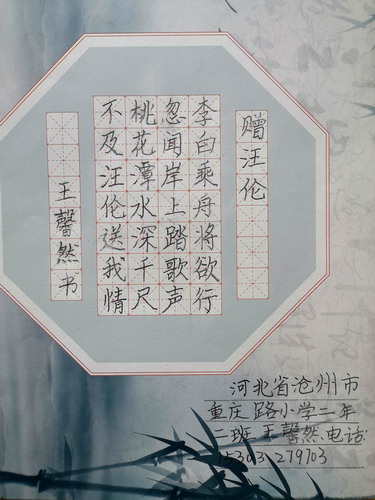 赠汪伦
李白乘舟将欲行
忽闻岸上踏歌声
桃花潭水深千尺
不及汪伦送我情
王馨然书
河北省沧州市
重庆路小学二年
二班王馨然.电话:
15303279703